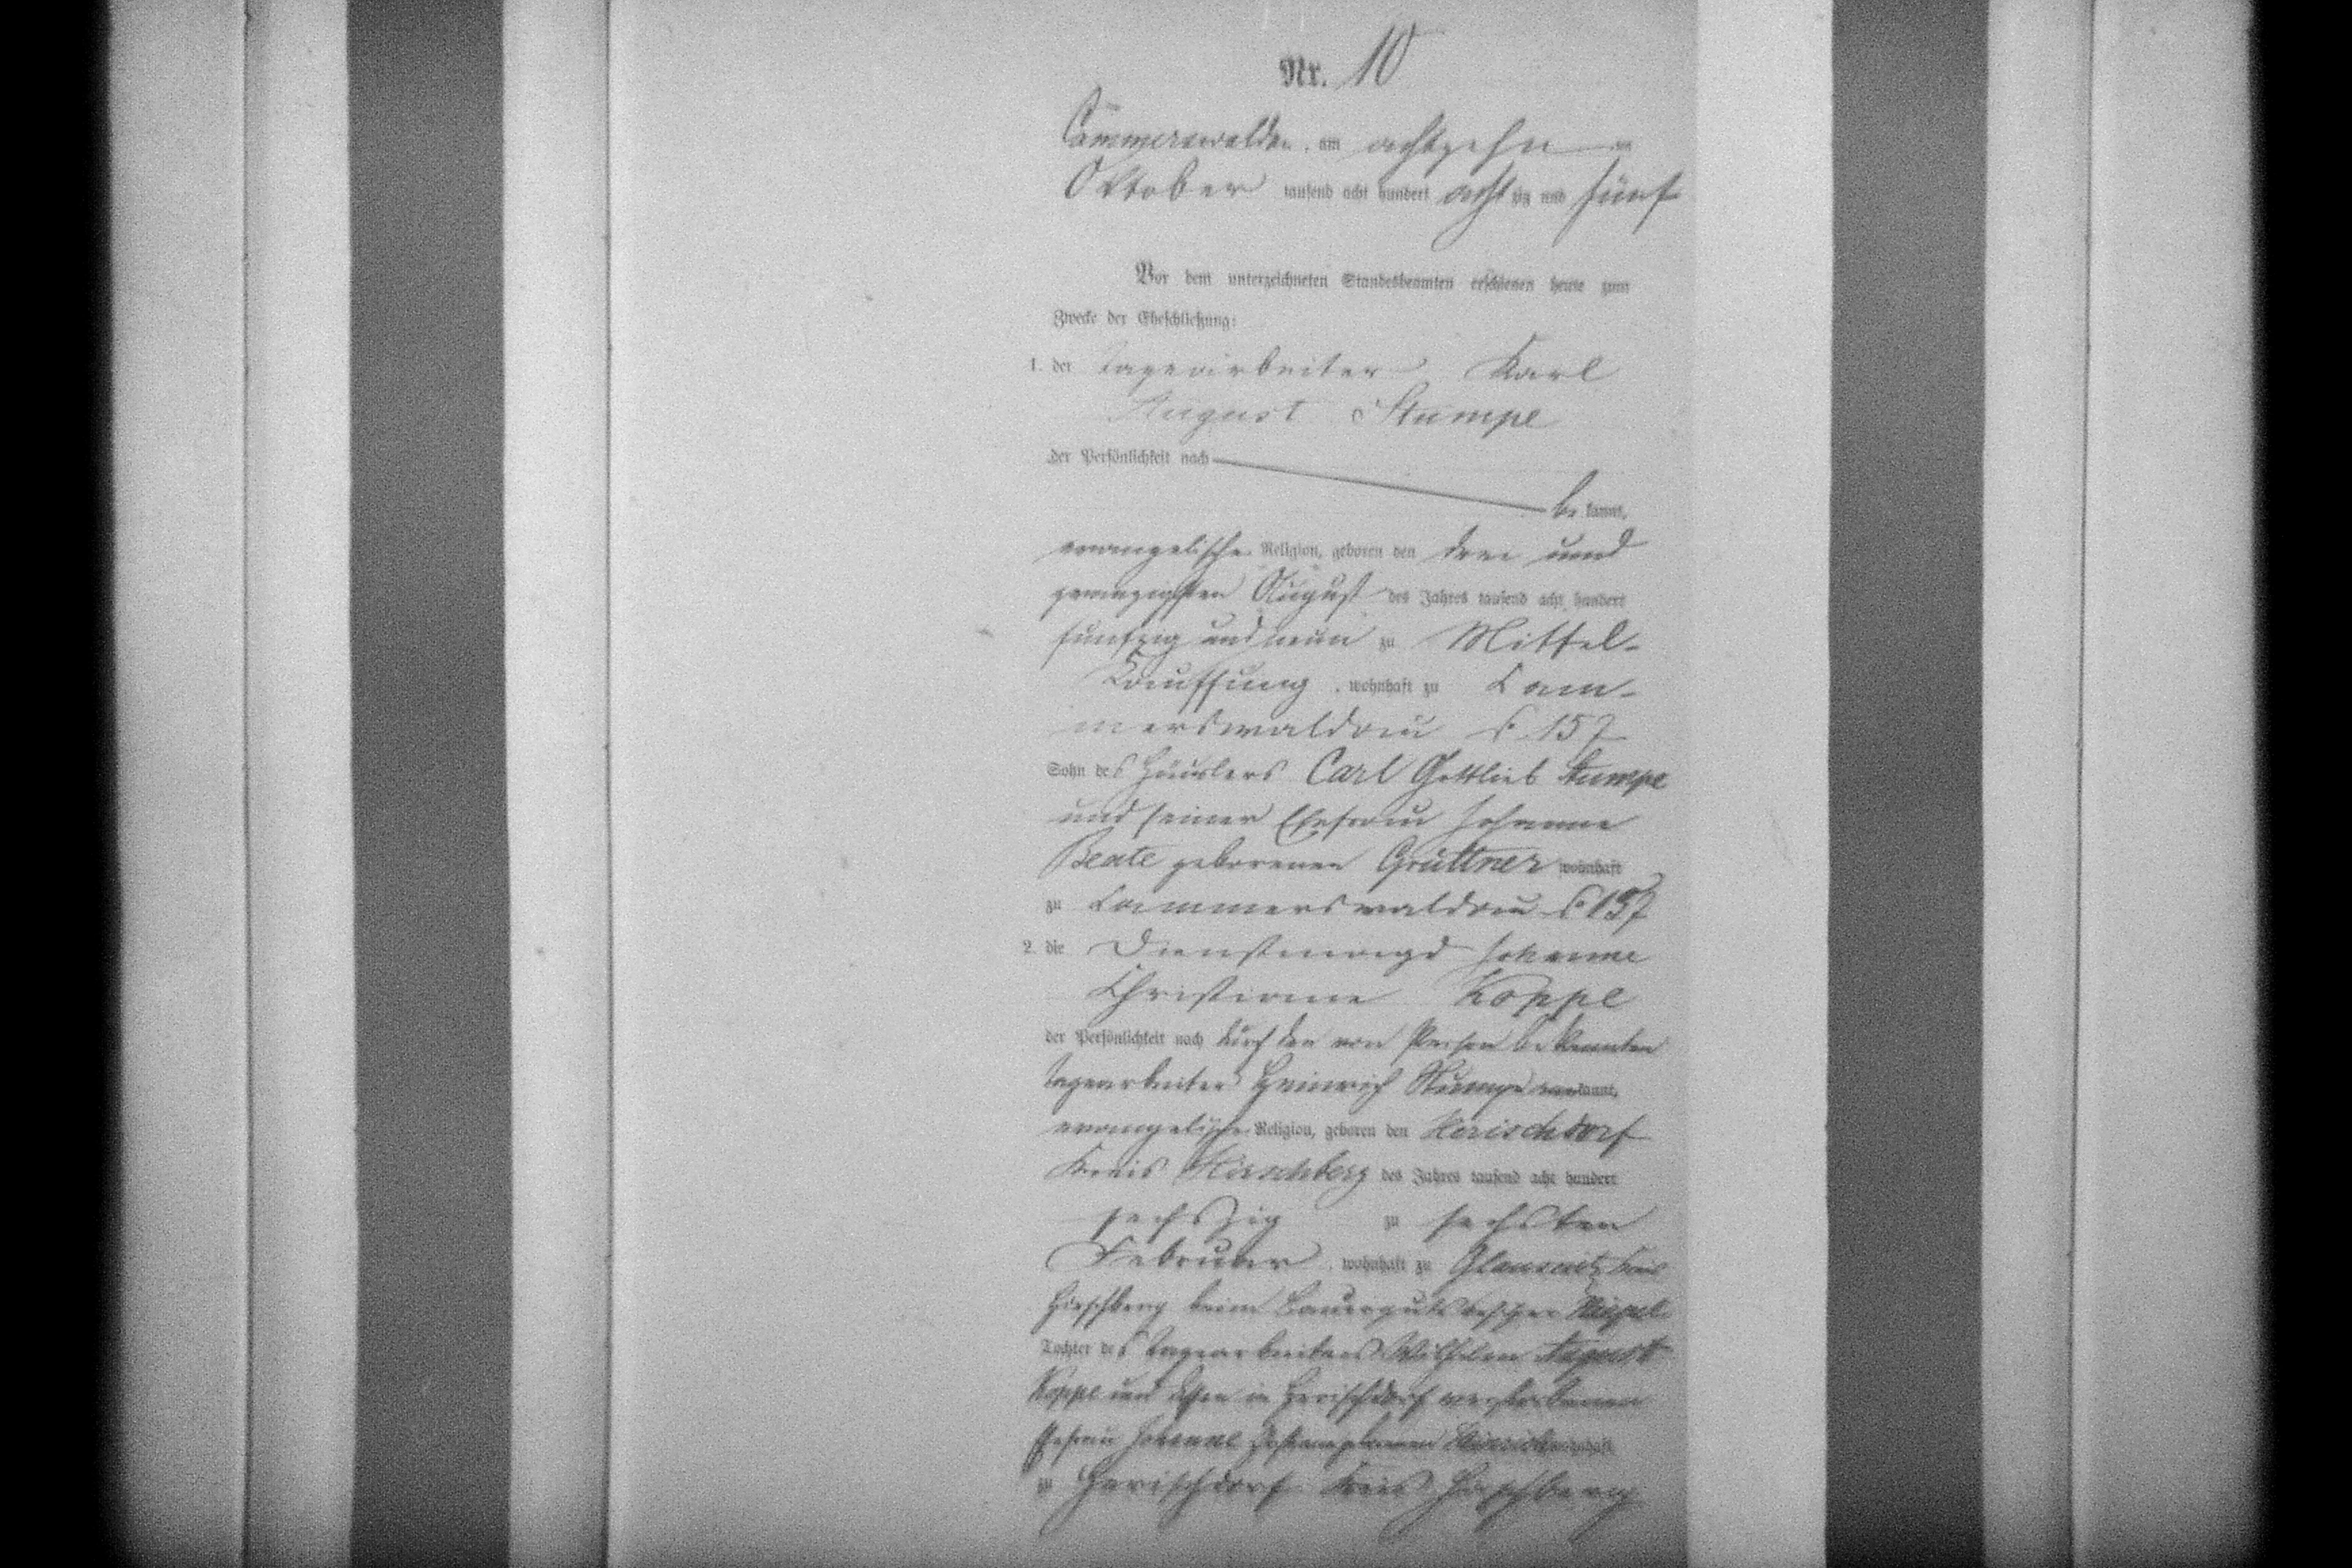 Nr. 10
Cammerswaldau, am achtzehn ten
Oktober tausend acht hundert acht zig und fünf
Vor dem unterzeichneten Standesbeamten erschienen heute zum
Zwecke der Eheschließung:
1. der Tagearbeiter Karl
August Stumpe
der Persönlichkeit nach
be kannt,
evangelische Religion, geboren den drei und
zwanzigsten August des Jahres tausend acht hundert
fünfzig und neun zu Mittel-
Kauffung, wohnhaft zu Cam-
merswaldau 157
Sohn des Häuslers Carl Gottlieb Stumpe
und seiner Ehefrau Johanne
Beate geborenen Grüttner wohnhaft
zu Cammerswaldau 157
2. die Dienstmagd Johanne
Christiane Koppe
der Persönlichkeit nach durch den von Person bekannten
Tagearbeiter Heinrich Stumpe kannt,
evangelische Religion, geboren den Herischdorf
Kreis Hirschberg des Jahres tausend acht hundert
sechszig zu sechsten
Februar, wohnhaft zu Kreis
Hirschberg beim Bauergutsbesitzer
Tochter des Tagearbeiters Wilhelm August
Koppe und dessen in Herischdorf verstorbenen
Ehefrau Johanne geborenen wohnhaft
zu Herischdorf Kreis Hirschberg